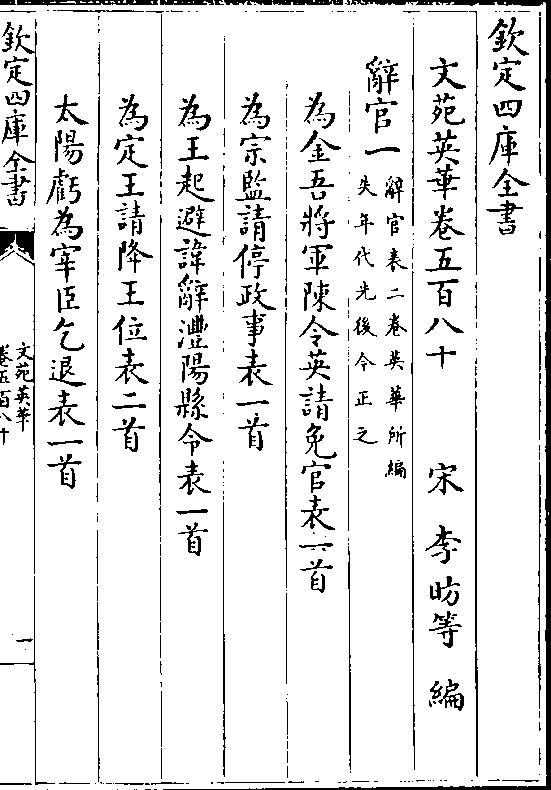 欽定四庫全書
文苑英華卷五百八十 宋 李昉等 編
辭官一 辭官表二卷英華所編
失年代先後今正之
為金吾將軍陳令英請免官表一首
為宗監請停政事表一首
為王起避諱辭澧陽縣令表一首
為定王請降王位表二首
太陽虧為宰臣乞退表一首
欽定四庫全書
文苑英華
卷五百八十
一